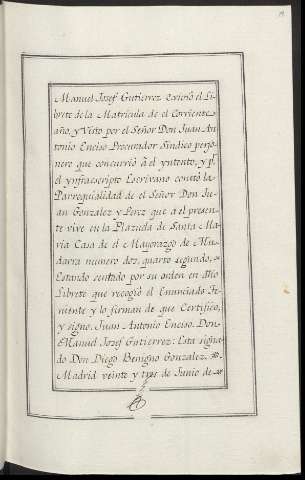 Manuel Josef Gutierrez exivió el Li-
brete de la Matricula de el Corriente
año, y Visto por el Señor Don Juan An-
tonio Enciso Procurador Sindico perso-
nero que concurrió â el yntento, y pr.
el ynfraescripto Escrivano constó la
Parroquialidad de el Señor Don Ju-
an Gonzalez y Perez que â el presen-
te vive en la Plazuela de Santa Ma-
ria Casa de el Mayorazgo de Mu-
darra numero dos, quarto segundo,
Estando sentado por su orden en dho
Librete que recogió el Enunciado The-
niente y lo firman de que Certifico,
y signo. Juan Antonio Enciso. Don
Manuel Josef Gutierrez: Esta signa-
do Don Diego Benigno Gonzalez.
Madrid veinte y tres de Junio de